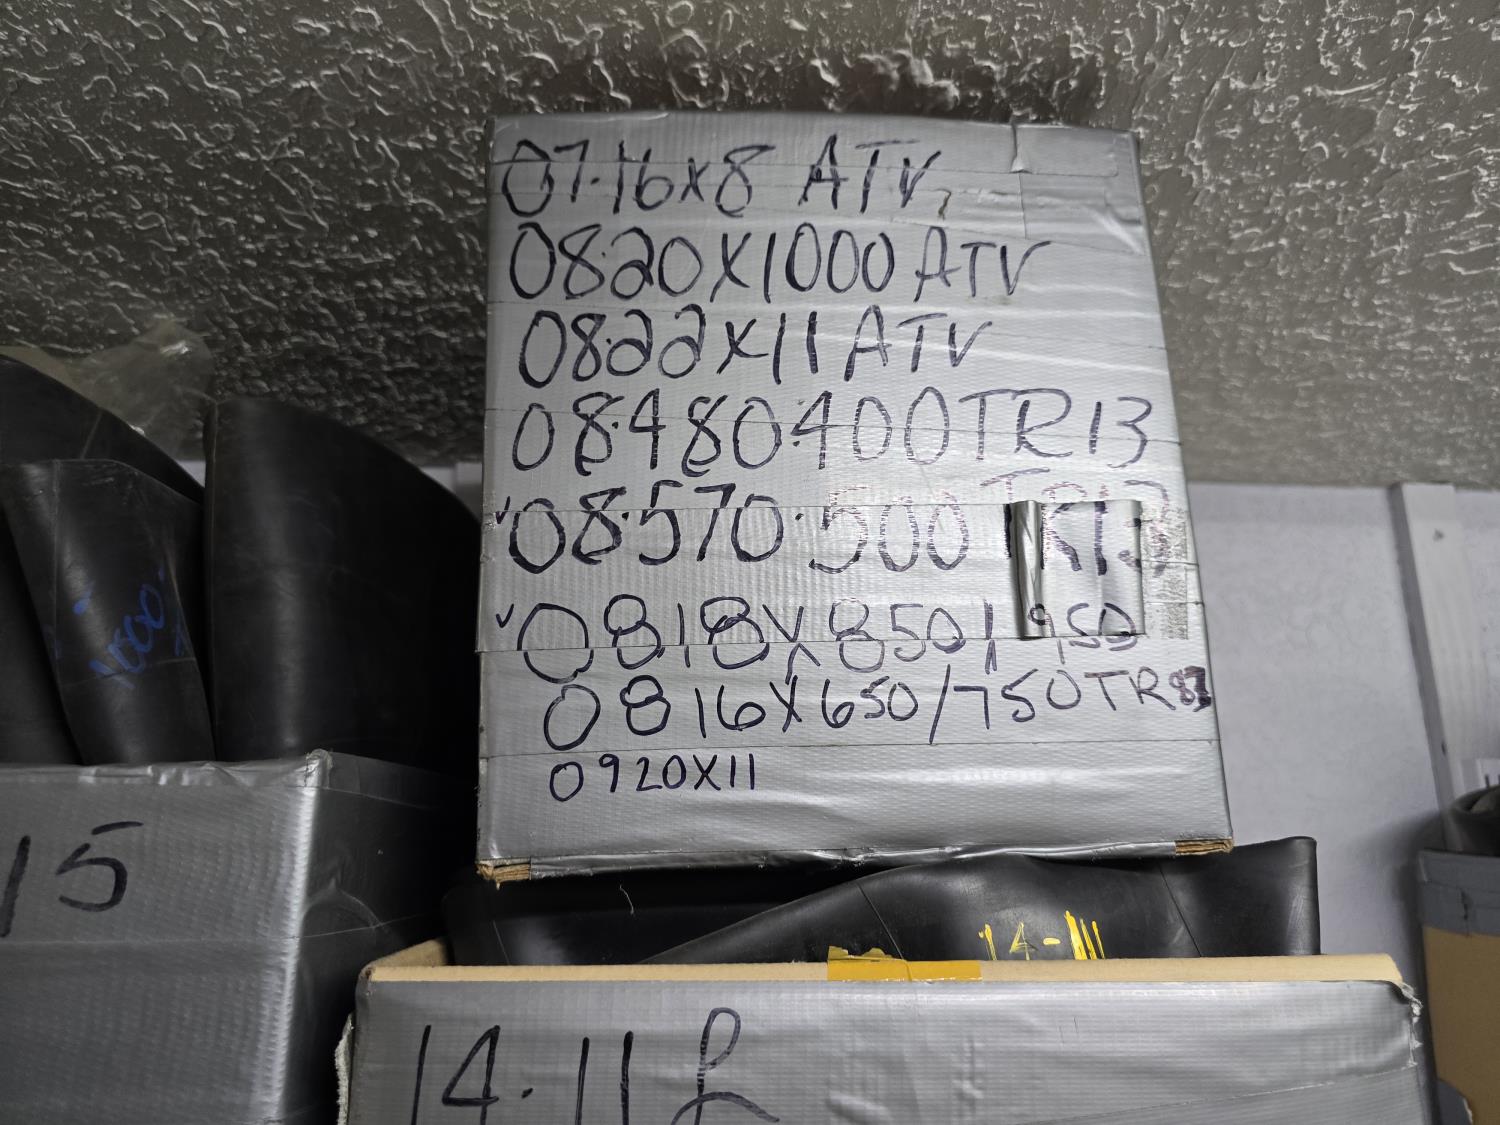 07.16x8 ATV
0820X1000 ATV
08.22X11 ATV
08.480.400TR13
✓08.570.500TR13
✓0818X850/950
0816X650/750TR87
0920X11
1000
15
14-11
14.11 R